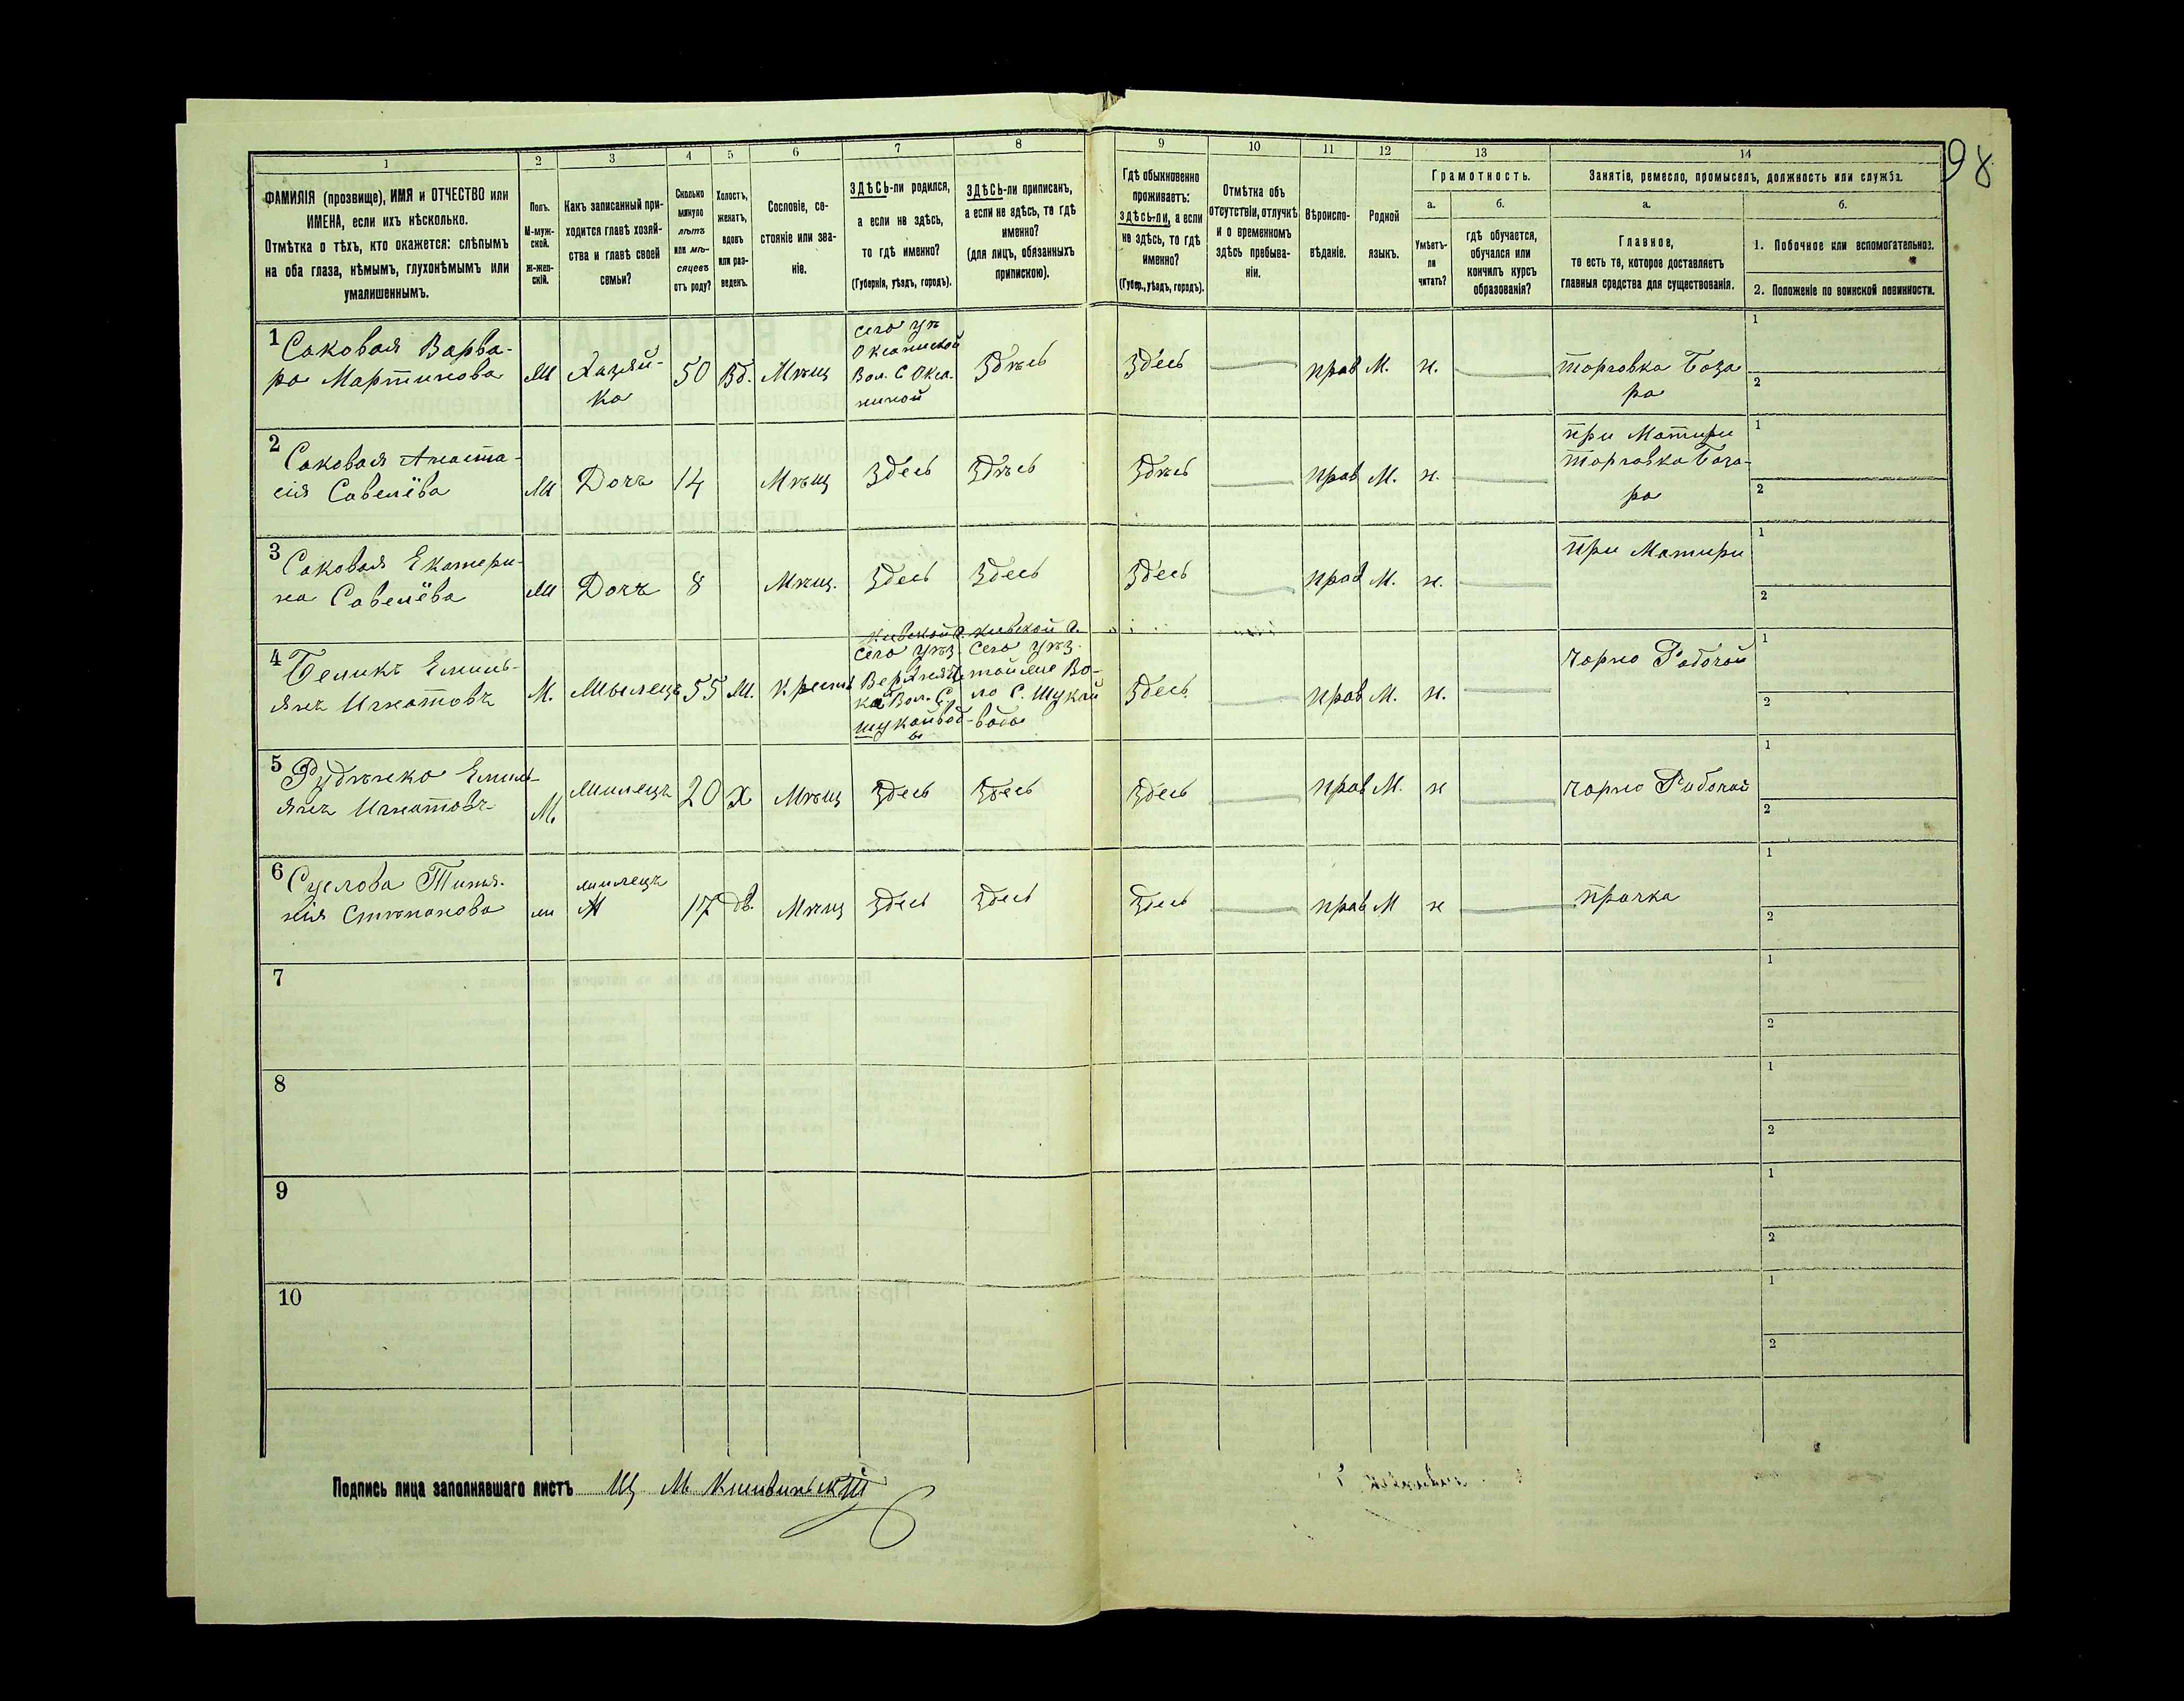 98
1 2 3 4 5 6 7 8 9 10 11 12 13 14
ФАМИЛІЯ (прозвище), ИМЯ и ОТЧЕСТВО или
ИМЕНА, если ихъ нѣсколько.
Отмѣтка о тѣхъ, кто окажется: слѣпымъ
на оба глаза, нѣмымъ, глухонѣмымъ или
умалишеннымъ.
Полъ.
М-муж-
ской.
Ж-жен-
скій.
Какъ записанный при-
ходится главѣ хозяй-
ства и главѣ своей
семьи?
Сколько
минуло
лѣтъ
или мѣ-
сяцевъ
отъ роду?
Холостъ,
женатъ,
вдовъ
или раз-
веденъ.
Сословіе, со-
стояніе или зва-
ніе.
ЗДѢСЬ-ли родился,
а если не здѣсь,
то гдѣ именно?
(Губернія, уѣздъ, городъ).
ЗДѢСЬ-ли приписанъ,
а если не здѣсь, то гдѣ
именно?
(для лицъ, обязанныхъ
припискою).
Гдѣ обыкновенно
проживаетъ:
ЗДѢСЬ-ли, а если
не здѣсь, то гдѣ
именно?
(Губер., уѣздъ, городъ).
Отмѣтка объ
отсутствіи, отлучкѣ
и о временномъ
здѣсь пребыва-
ніи.
Вѣроиспо-
вѣданіе.
Родной
языкъ.
Грамотность.
а.
Умѣетъ-
ли
читать?
б.
гдѣ обучается,
обучался или
кончилъ курсъ
образованія?
Занятіе, ремесло, промыселъ, должность или служба.
а.
Главное,
то есть то, которое доставляетъ
главныя средства для существованія.
б.
1. Побочное или вспомогательное.
2. Положеніе по воинской повинности.
1 Саковая Варва-
ра Мартинова
Ж
Хазяй-
ка
50
Вд.
Мѣщ
сего уѣ
Вол. С
Здѣсь
Здесь
прав
М.
н.
торговка База
ра
1
2
2 Саковая Анаста-
сія Савелёва
Ж
Дочъ
14
Мѣщ
Здесь
Здѣсь
Здѣсь
прав
М.
н.
при Матири
торговка База-
ра
1
2
3 Саковая Екатери-
на Савелёва
Ж
Дочъ
8
Мѣщ.
Здесь
Здесь
Здесь
прав
М.
н.
при Матири
1
2
4 Беликъ Емиль-
янъ Игнатовъ
М.
55
Крест
Киевской г.
сего уѣз
Вол. С.
Киевской г.
сего уѣз.
той же Во-
ло С. Щукай
воды
Здесь
прав
М.
н.
чорно Рабочой
1
2
5 Рудѣнко Емиль-
янъ Игнатовъ
М.
жилецъ
20
х
Мѣщ
Здесь
Здесь
Здесь
прав
М.
н
чорно Рабочой
1
2
6 Суслова
Стѣпанова
ж
жилецъ
17
дѣ.
Мѣщ
Здесь
Здесь
Здесь
прав
М
н
прачка
1
2
7
1
2
8
1
2
9
1
2
10
1
2
Подпись лица заполнявшаго листъ